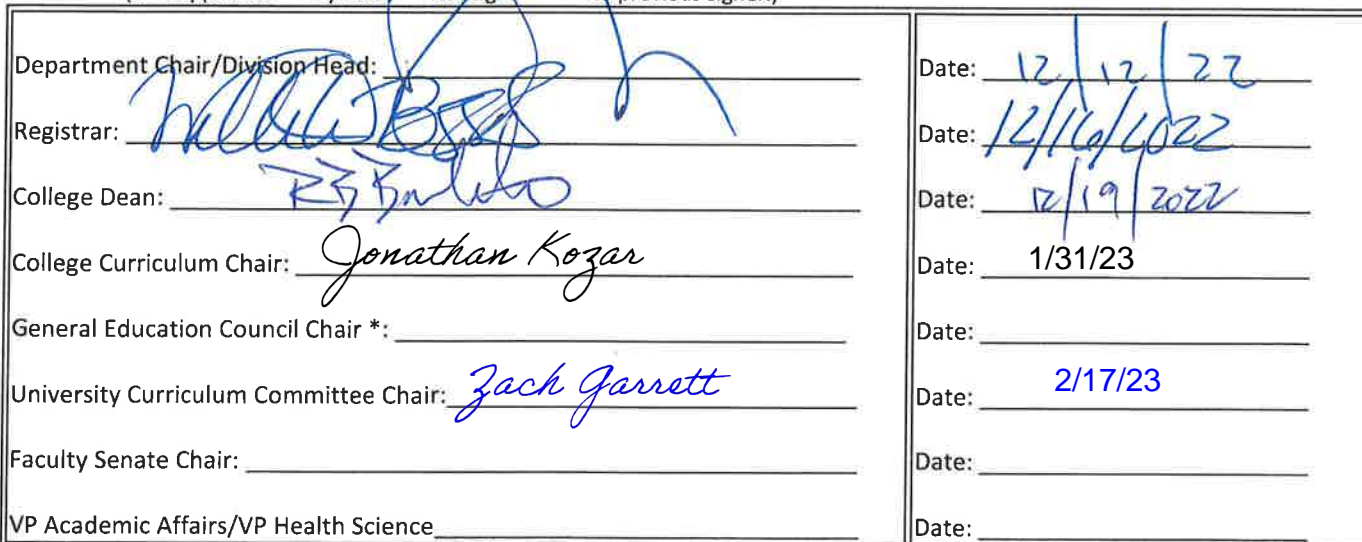 previous signer)
Department Chair/Division Head:
Date: 12/12/22
Registrar:
Date: 12/16/2022
College Dean:
Date: 12/19/2022
College Curriculum Chair: Jonathan Kozar
Date: 1/31/23
General Education Council Chair *:
Date:
University Curriculum Committee Chair: Zach Garrett
Date: 2/17/23
Faculty Senate Chair:
Date:
VP Academic Affairs/VP Health Science
Date: